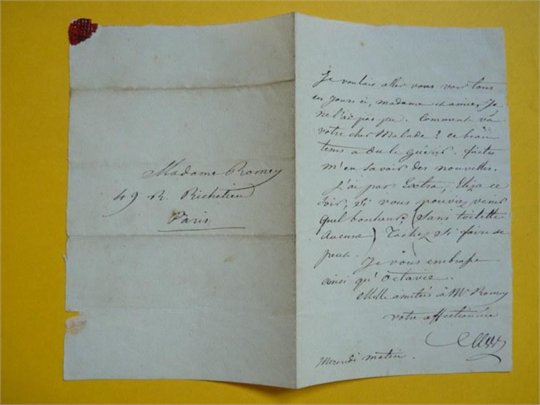 Madame Romey
49 R. Richelieu
Paris
Je voulais aller vous voir tous
ces jours ci, madame et amie, Je
ne l'ai pas pu. Comment va
votre cher Malade ? ce beau
tems a du le guérir. faites
m'en savoir des nouvelles.
J'ai par Extra, Eliza ce
soir, si vous pouviez venir
quel bonheur (sans toilette
aucune) Tachez si faire se
peut.
Je vous embrasse
ainsi qu'Octavie.
Mille amitiés à Mr Romey
votre affectionnée
Mercredi matin.